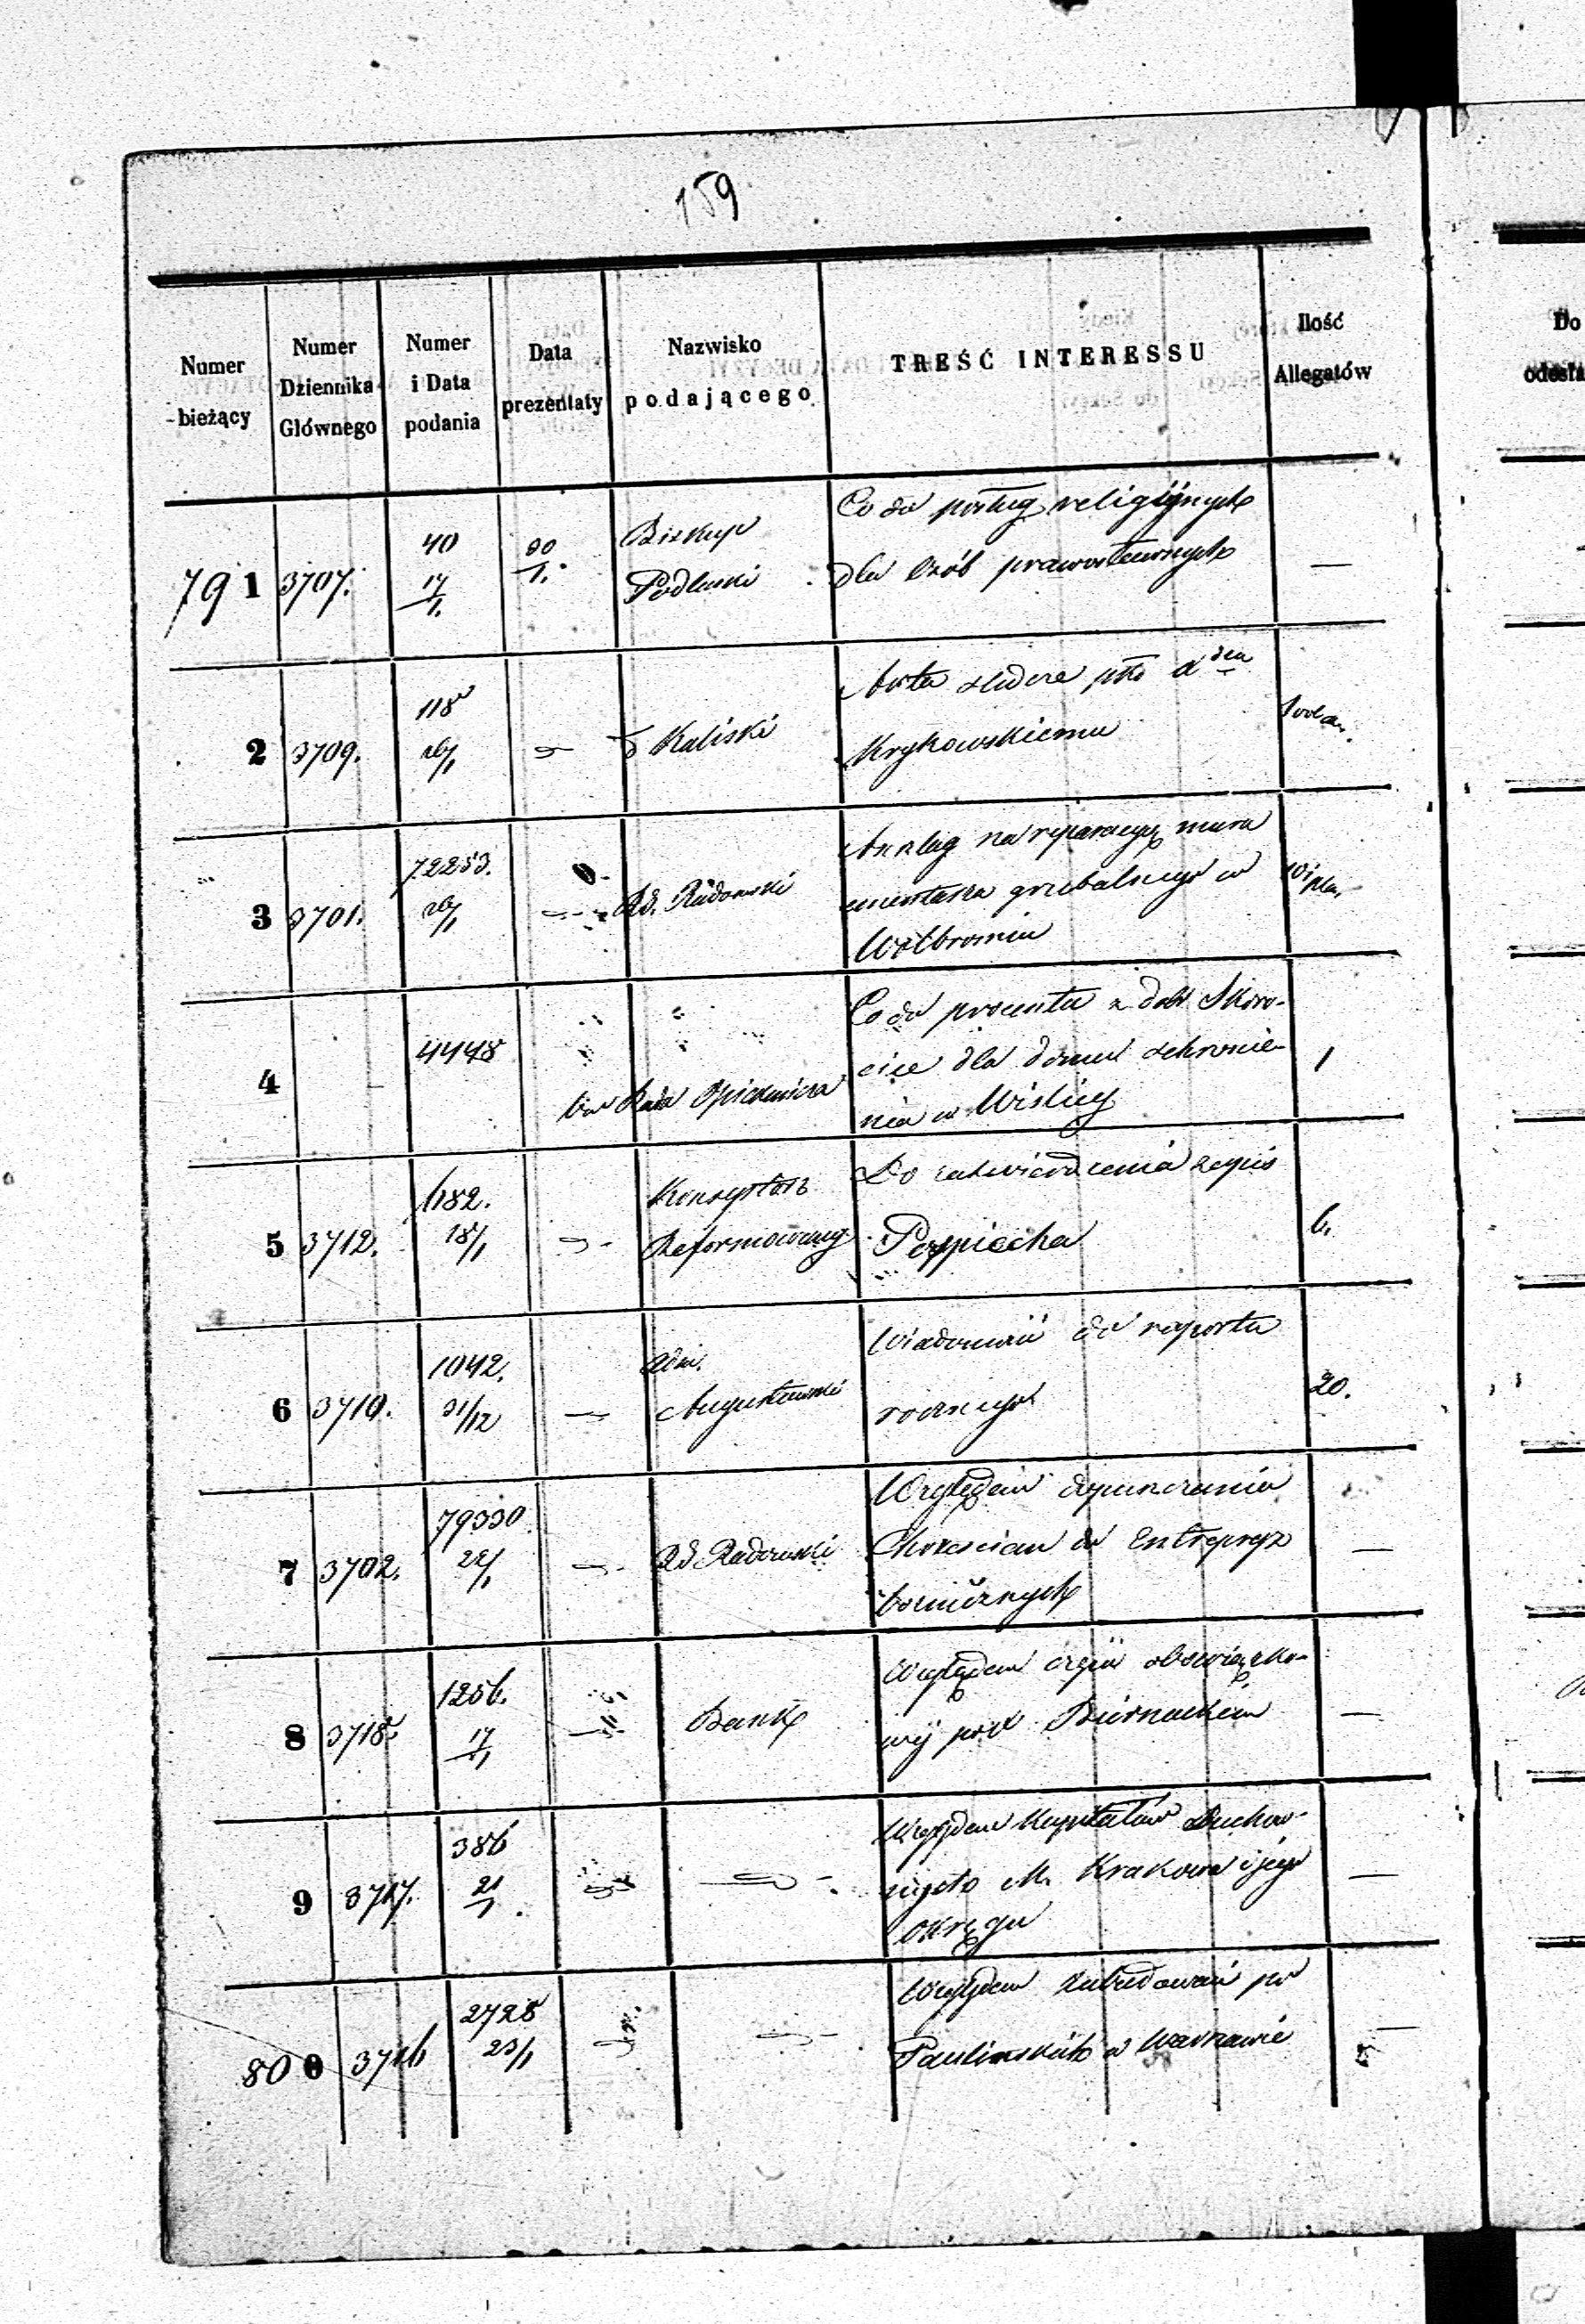 159
Numer bieżący
Numer Dziennika Głównego
Numer i Data podania
Data prezentaty
Nazwisko podającego
TREŚĆ INTERESSU
Ilość Allegatów
Do
791 3707. 40 17/1. 30/1. Biskup Podlaski Co do posług religijnych —
dla osób prawosławnych
2 3709. 118 26/1 Kaliski
Krykowskiemu
3 3701. 72253. 26/1 Rd. Radomski Anszlag na reparacyą muru
cmentarza grzebalnego w
Wolbromiu
4 4448 Rada Opiekuńcza Co do procentu z dóbr Skoro-
cice dla domu schronie- 1
nia w Wiślicy
5 3712. 182. 18/1 Konsystorz Reformowany Do zatwierdzenia zapis 6.
Pospiecha
6 3710. 1042. 31/12 Adm. Augustowski Wiadomość do raportu 20.
rocznego
7 3702. 79330 22/1 Rd. Radomski Względem dopuszczenia —
Chrześcian do Entrepryz
8 3718 1256. 17/1 Bank Względem obowiązko- —
wéj pod Biernackim
9 3717. 386 21/1 Względem Kapitałów Duchow- —
nych M. Krakowa i jego
Okręgu
800 3716 2728 23/1 Względem zabudowań po —
Paulińskich w Warszawie